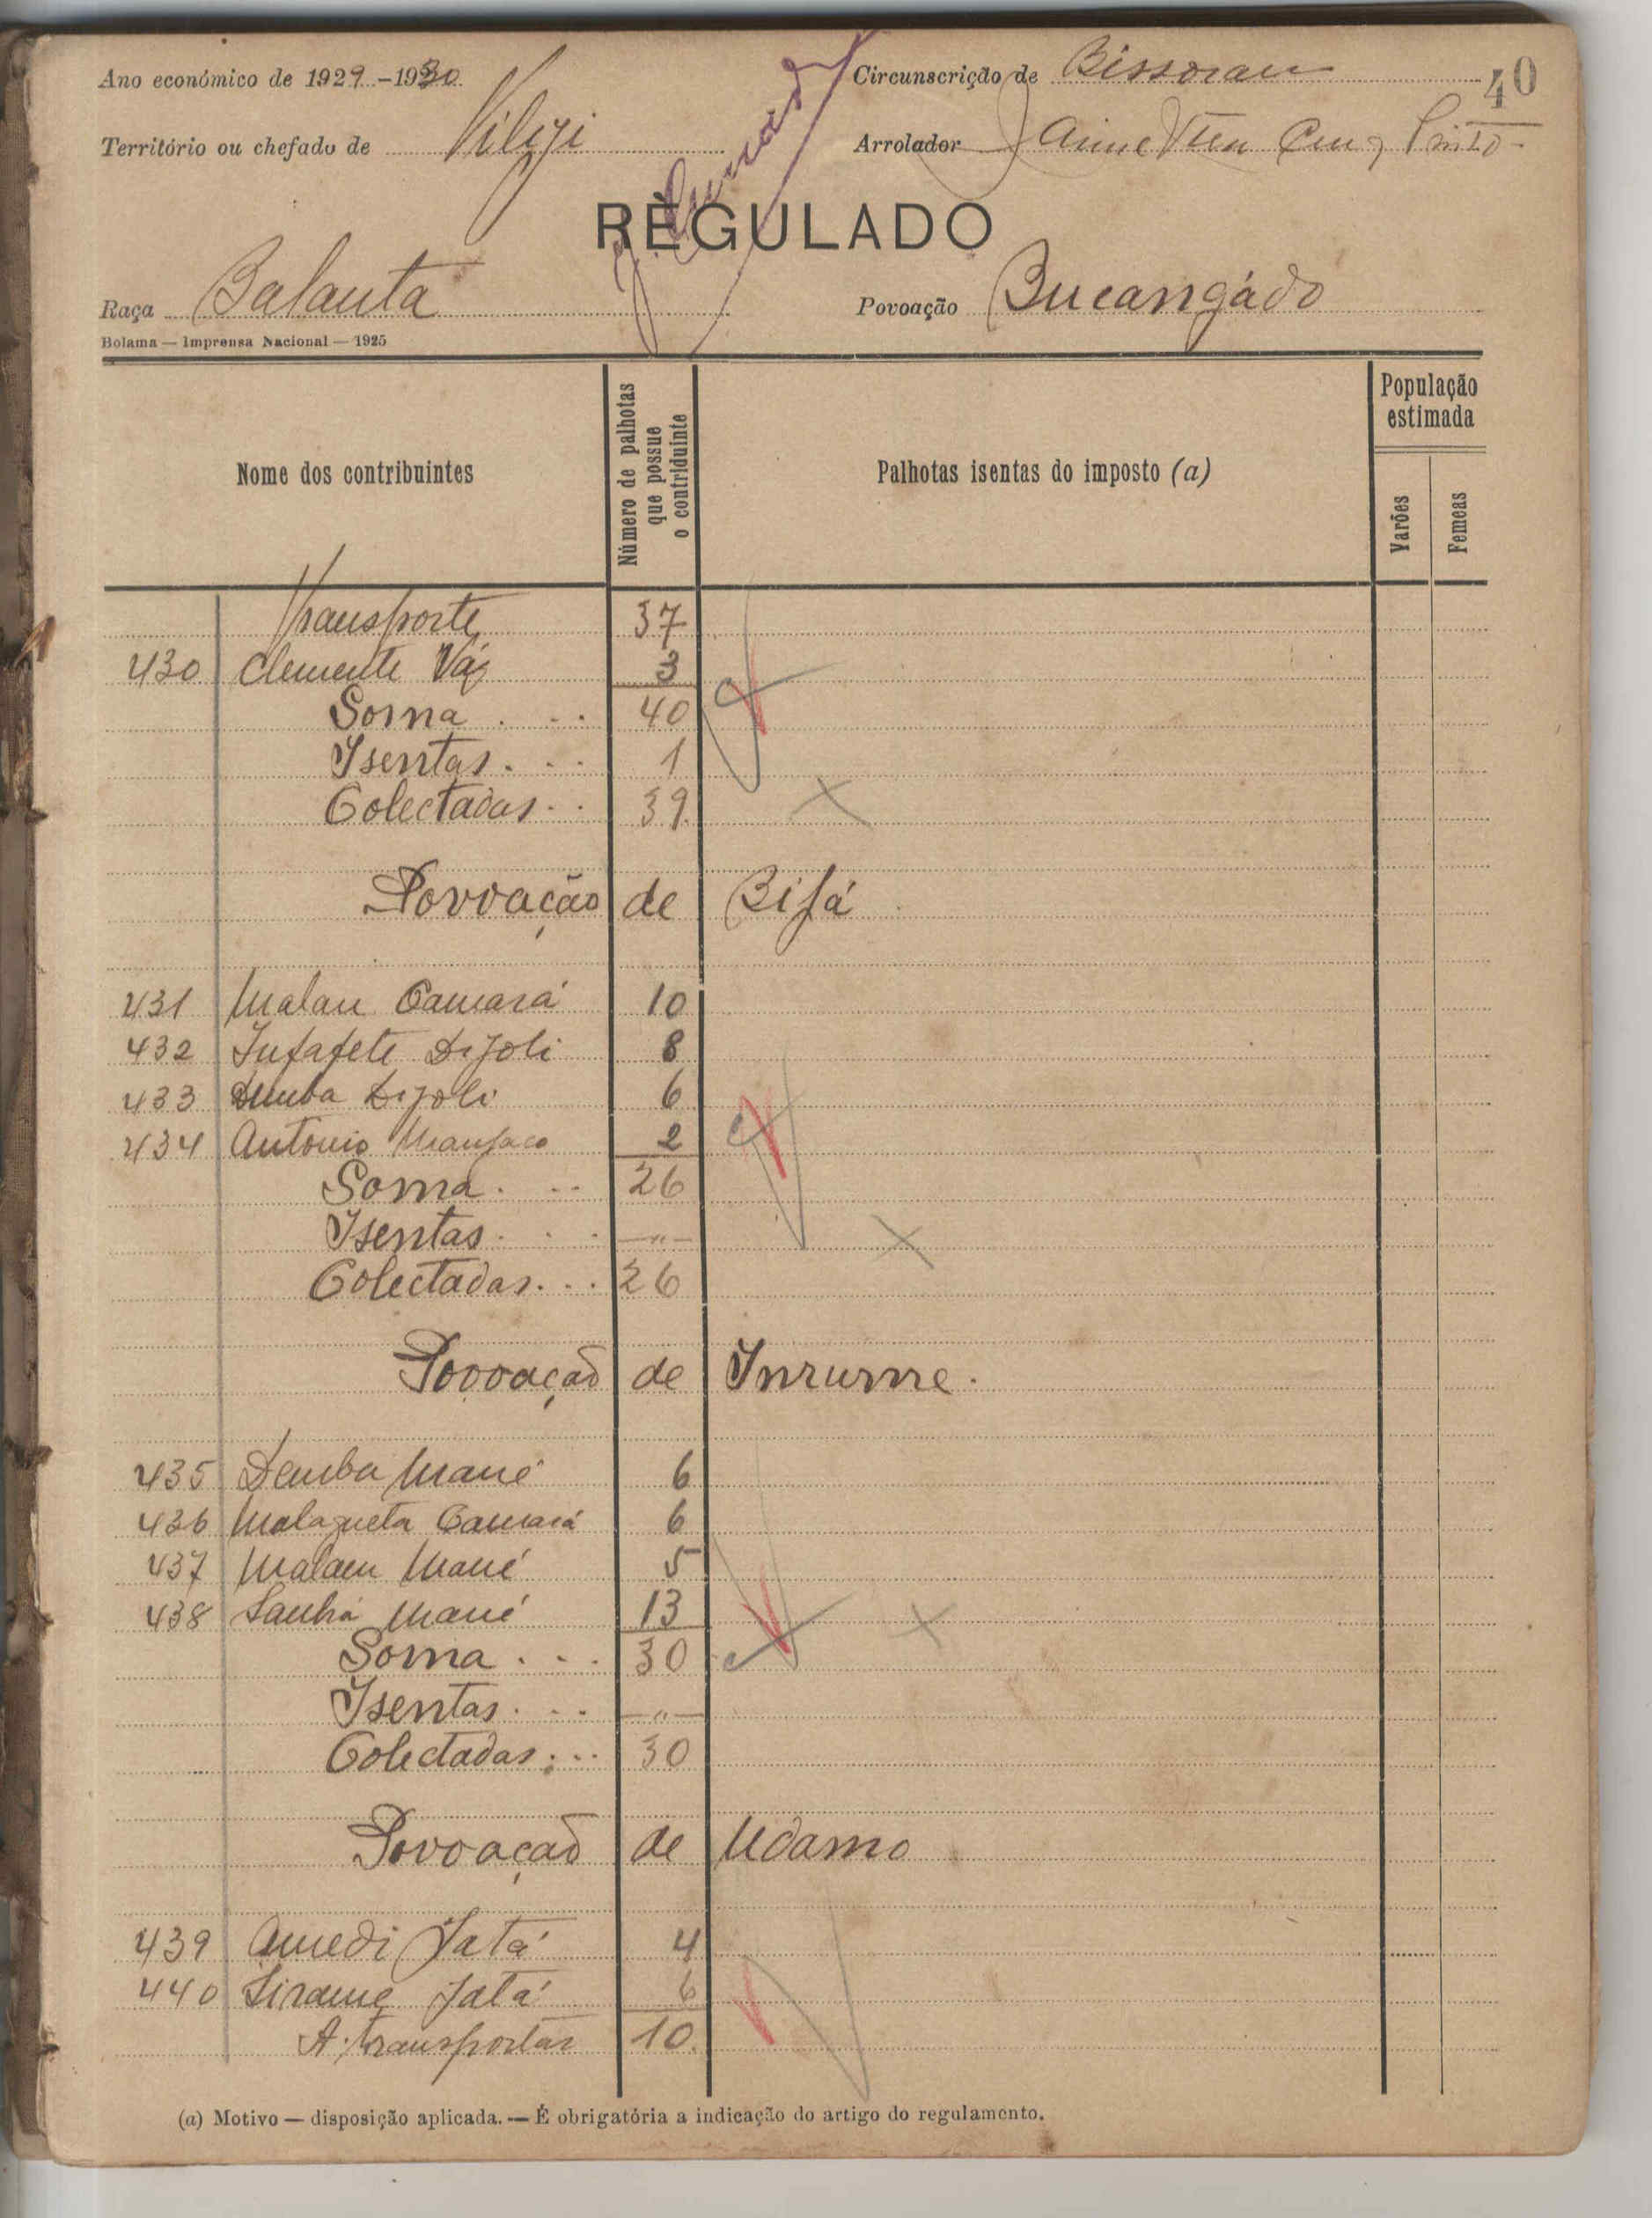 Ano económico de 1929-1930
Circunscrição de Bissorau
40
Território ou chefado de
Arrolador Jaime Pinto
REGULADO
Raça Balanta
Povoação Bucangádo
Bolama — Imprensa Nacional — 1925
Nome dos contribuintes
Número de palhotas que possue o contriduinte
Palhotas isentas do imposto (a)
População estimada
Varões
Femeas
Transporte 37
430 Clemente Váz 3
Soma . . . 40
Isentas . . . 1
Colectadas . . 39.
Povoação de Bifá
431 Malan Camará 10
432 Infafete Djoli 8
433 Demba Djoli 6
434 Antonio Manjaco 2
Soma . . . 26
Isentas . . . —"—
Colectadas . . . 26
Povoação de Inrume.
435 Demba Mané 6
436 Malagueta Camará 6
437 Malam Mané 5
438 Sanhá Mané 13
Soma . . . 30
Isentas . . . —"—
Colectadas . . . 30
Povoação de Udamo
439 Amedi Jatá 4
440 Sirame Jatá 6
A transportar 10.
(a) Motivo — disposição aplicada. — É obrigatória a indicação do artigo do regulamento.